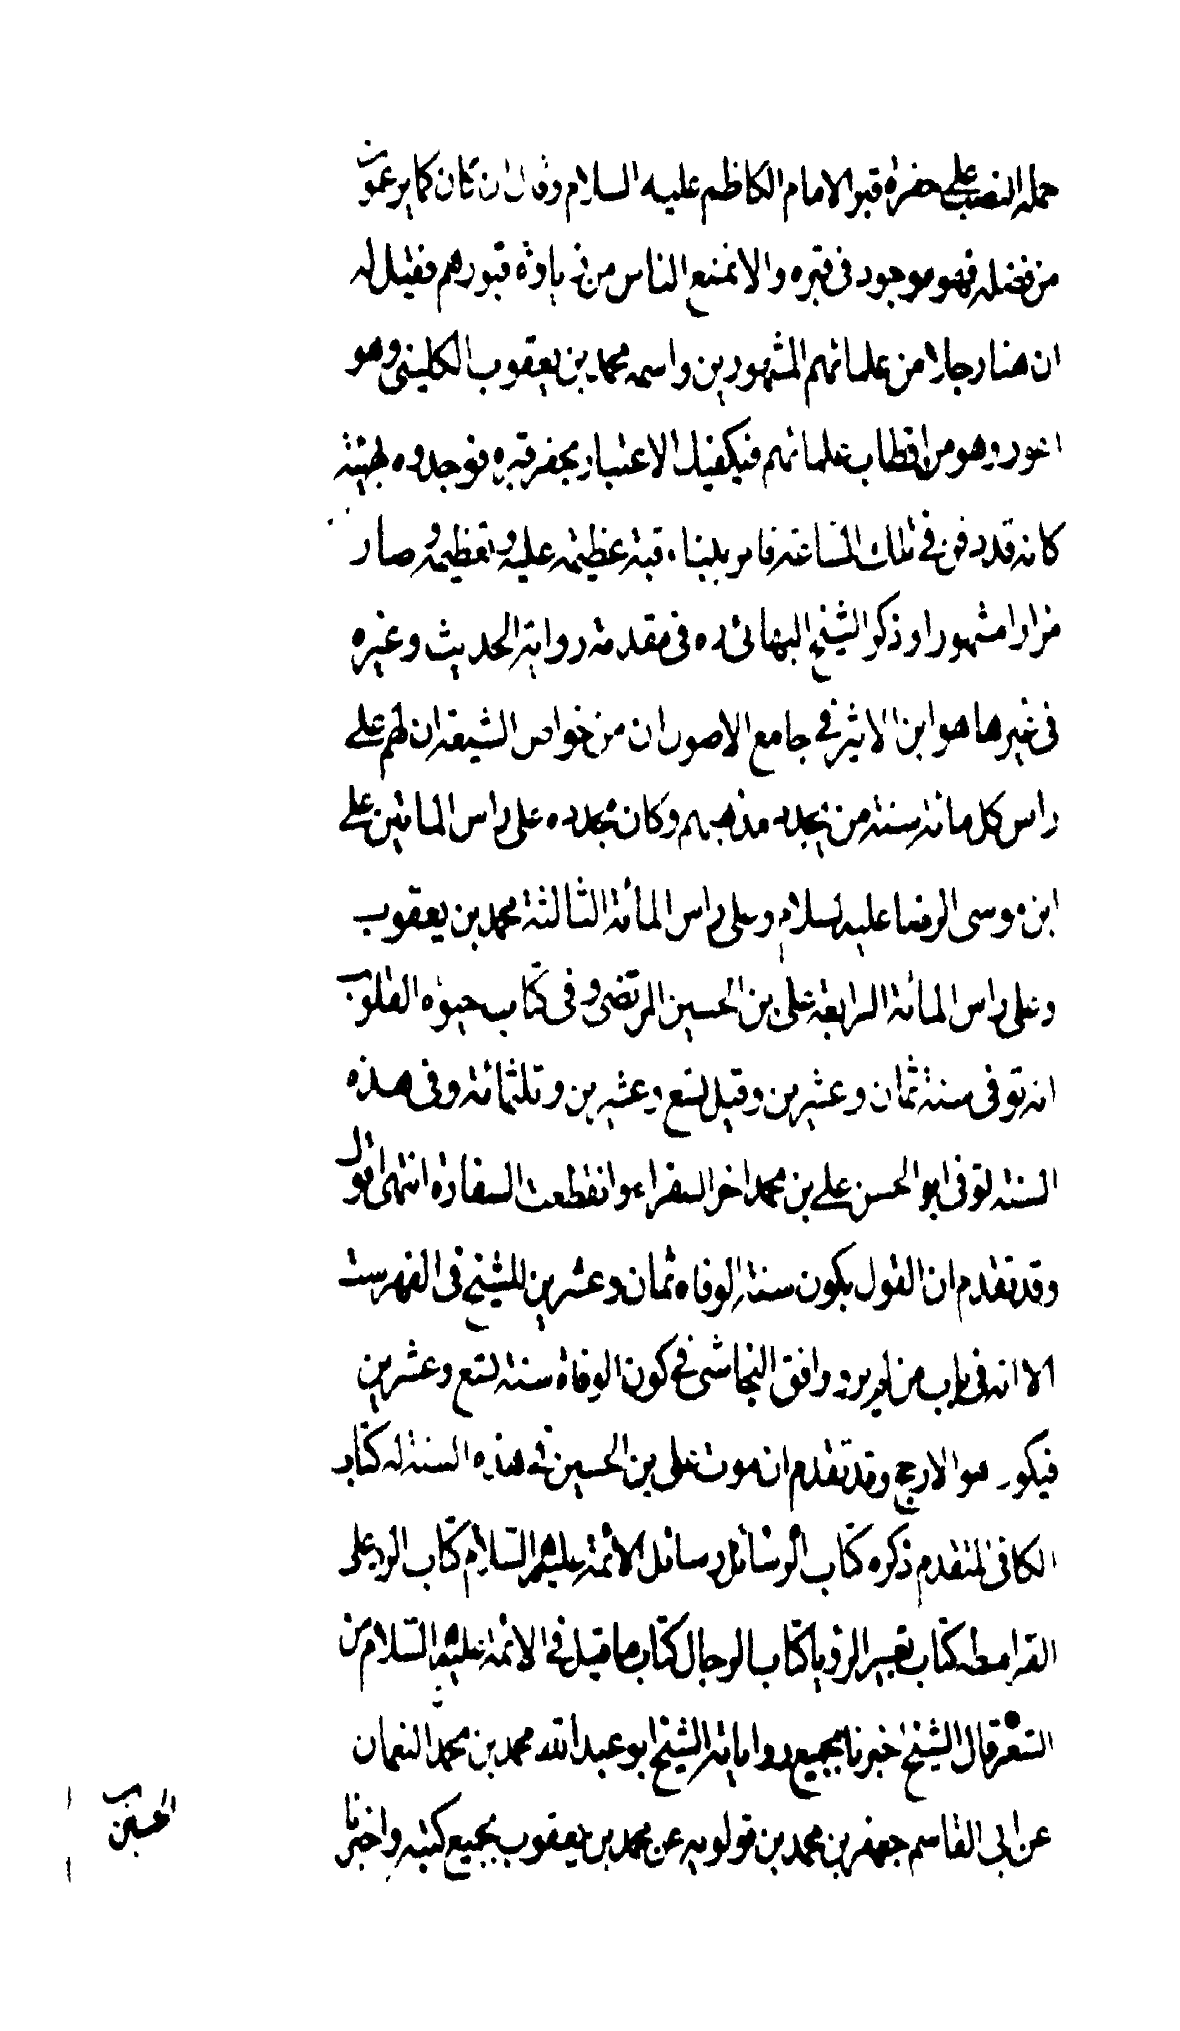 حمله النصب على حفرة قبر الامام الكاظم عليه السلام وقال ان كان كما يزعمون
من فضله فهو موجود فى قبره والا نمنع الناس من زيارة قبورهم فقيل له
ان هنا رجلا من علمائهم المشهورين واسمه محمد بن يعقوب الكلينى وهو
اعور وهو من اقطاب علمائهم فيكفيك الاعتبار بحفر قبره فوجدوه بهيئته
كانه قد دفن فى تلك الساعة فامر ببناء قبة عظيمة عليه وتعظيمه وصار
مزارا مشهورا وذكر الشيخ البهائى ره فى مقدمة رواية الحديث وغيره
فى غيرها هو ابن الاثير فى جامع الاصول ان من خواص الشيعة ان لهم على
راس كل مائة سنة من يجدد مذهبهم وكان مجدده على راس المائتين على
ابن موسى الرضا عليه السلام وعلى راس المائة الثالثة محمد بن يعقوب
وعلى راس المائة الرابعة على بن الحسين المرتضى وفى كتاب حيوة القلوب
انه توفى سنة ثمان وعشرين وقيل تسع وعشرين وثلثمائة وفى هذه
السنة توفى ابو الحسن على بن محمد اخر السفراء وانقطعت السفارة انتهى اقول
وقد تقدم ان القول بكون سنة الوفاة ثمان وعشرين للشيخ فى الفهرست
الا انه فى باب من لم يرو وافق النجاشى فى كون الوفاة سنة تسع وعشرين
فيكون هو الارجح وقد تقدم ان موت على بن الحسين فى هذه السنة له كتاب
الكافى المتقدم ذكره كتاب الرسائل رسائل الائمة عليهم السلام كتاب الرد على
القرامطه كتاب تعبير الرؤيا كتاب الرجال كتاب ما قيل فى الائمة عليهم السلام من
الشعر قال الشيخ اخبرنا بجميع رواياته الشيخ ابو عبد الله محمد بن محمد النعمان
عن ابى القاسم جعفر بن محمد بن قولويه عن محمد بن يعقوب بجميع كتبه واخبرنا
الحسين بن